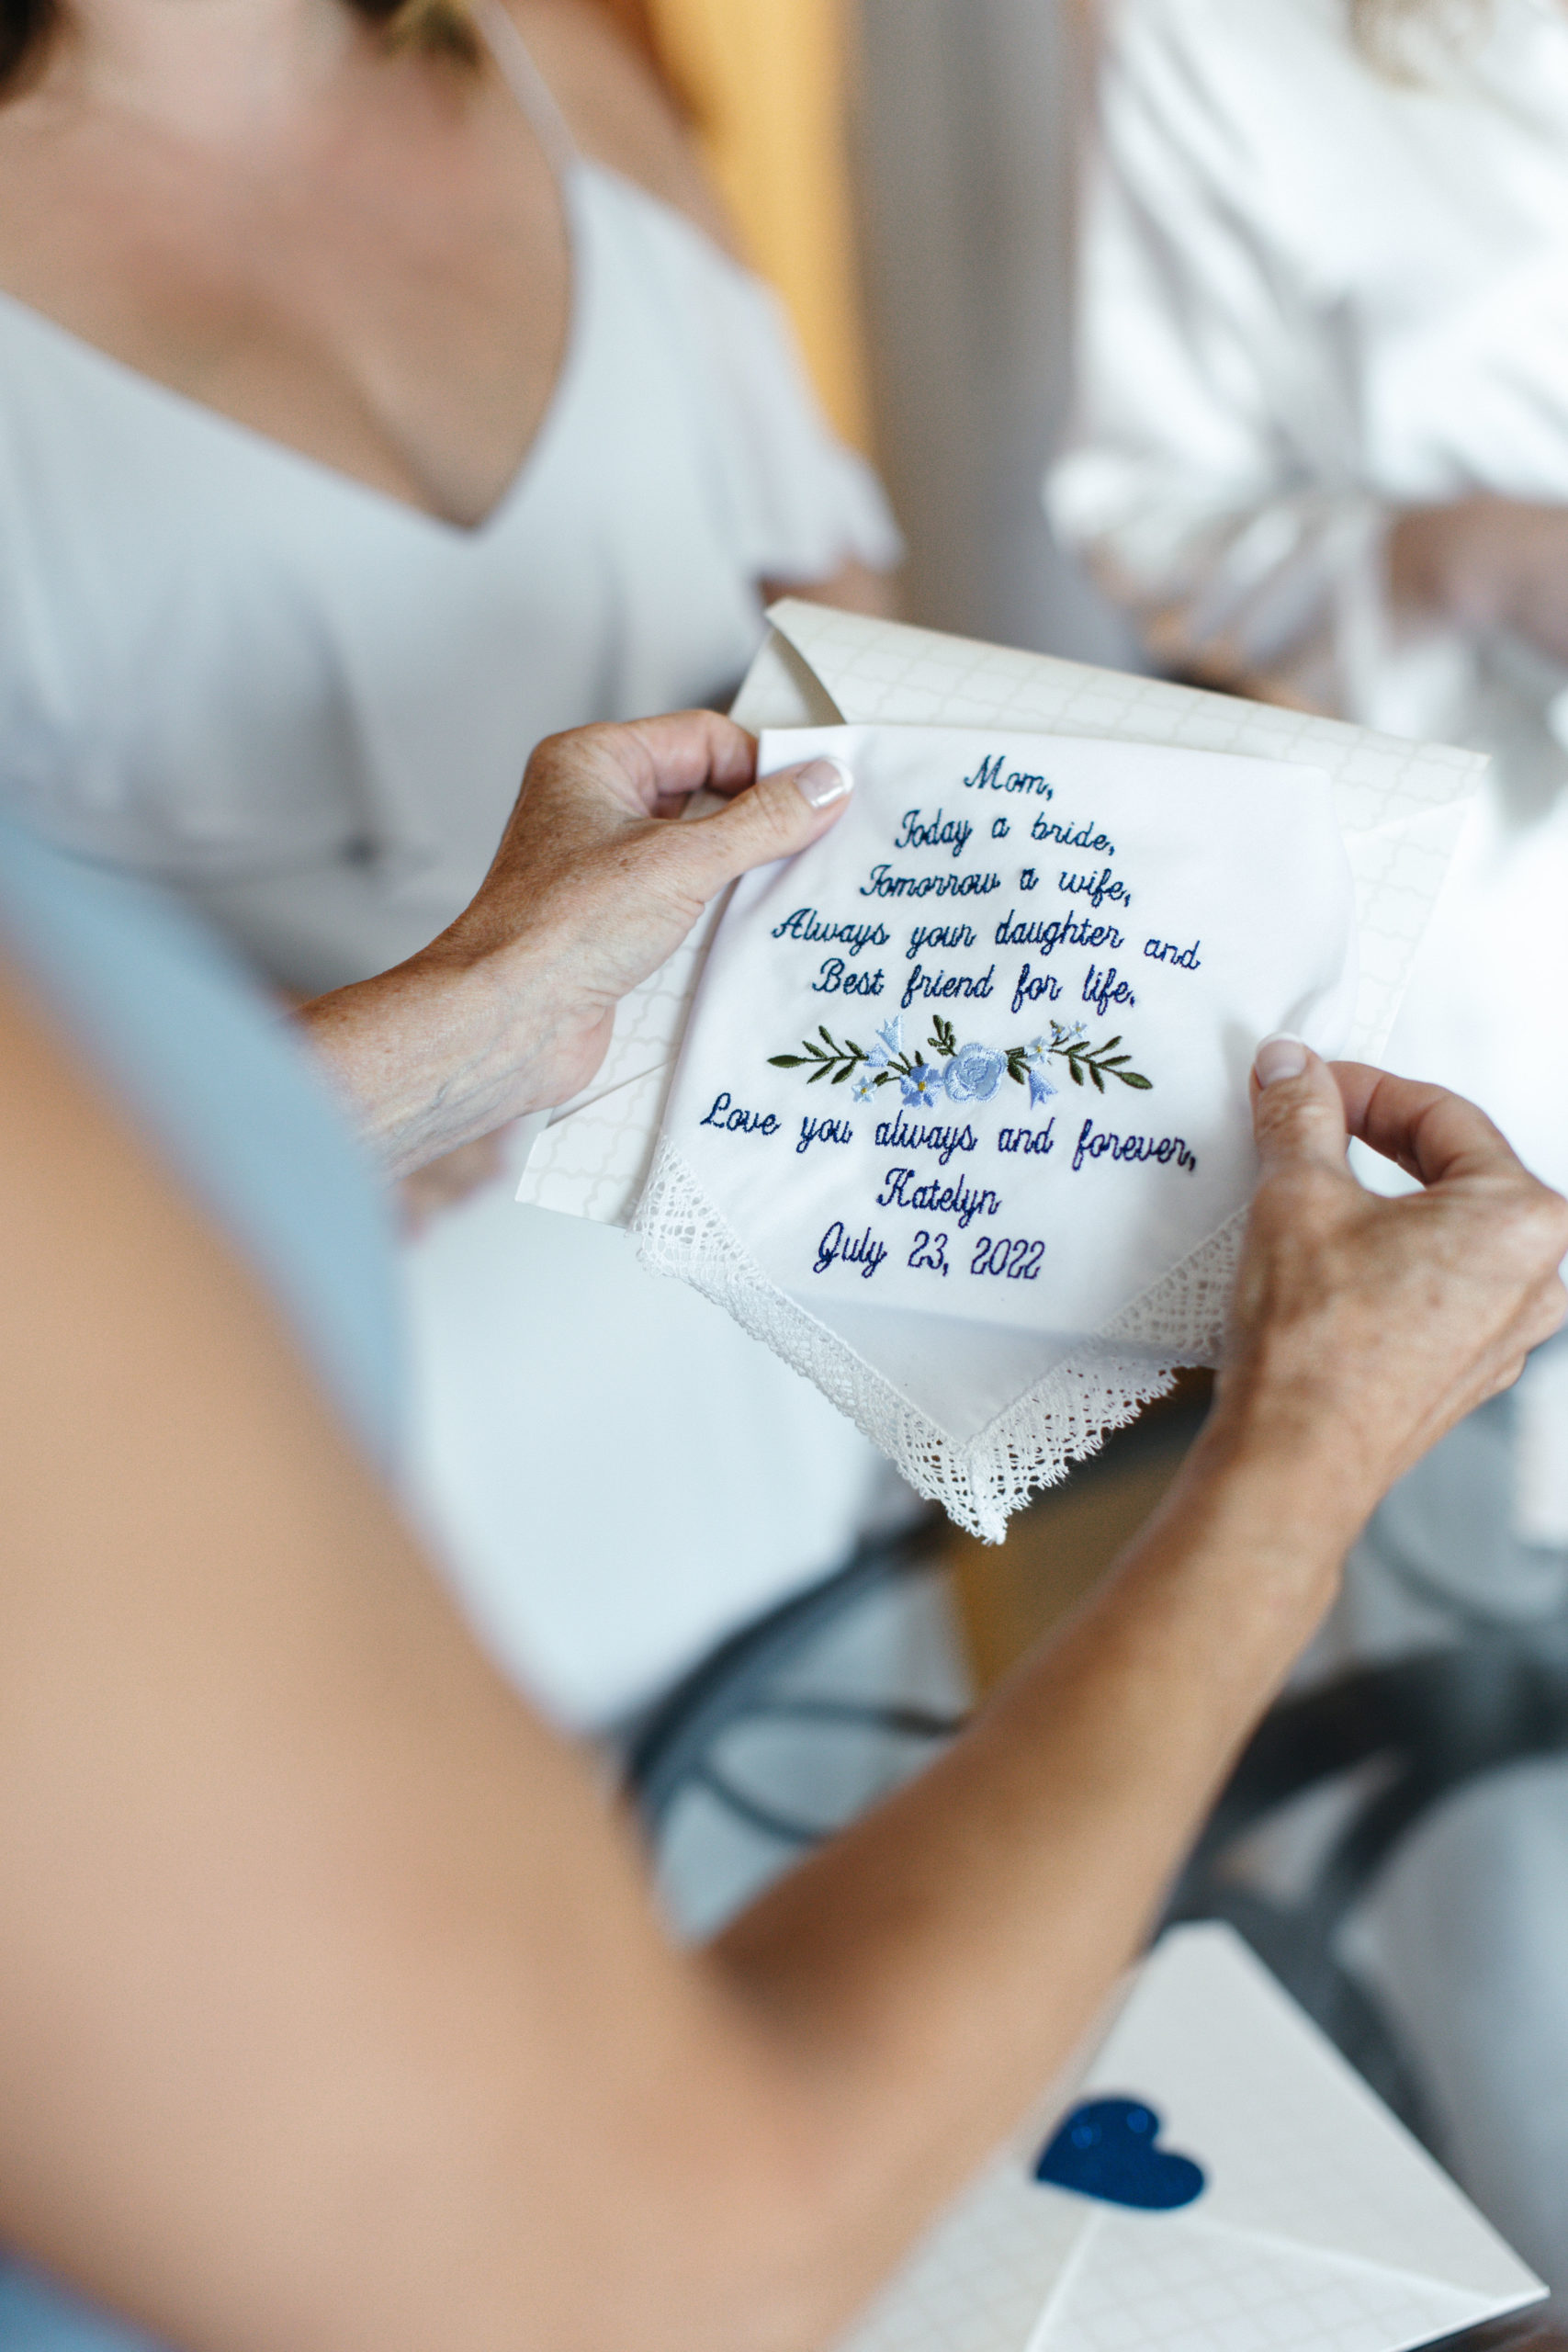 Mom,
Today a bride,
Tomorrow a wife,
Always your daughter and
Best friend for life.
Love you always and forever,
Katelyn
July 23, 2022